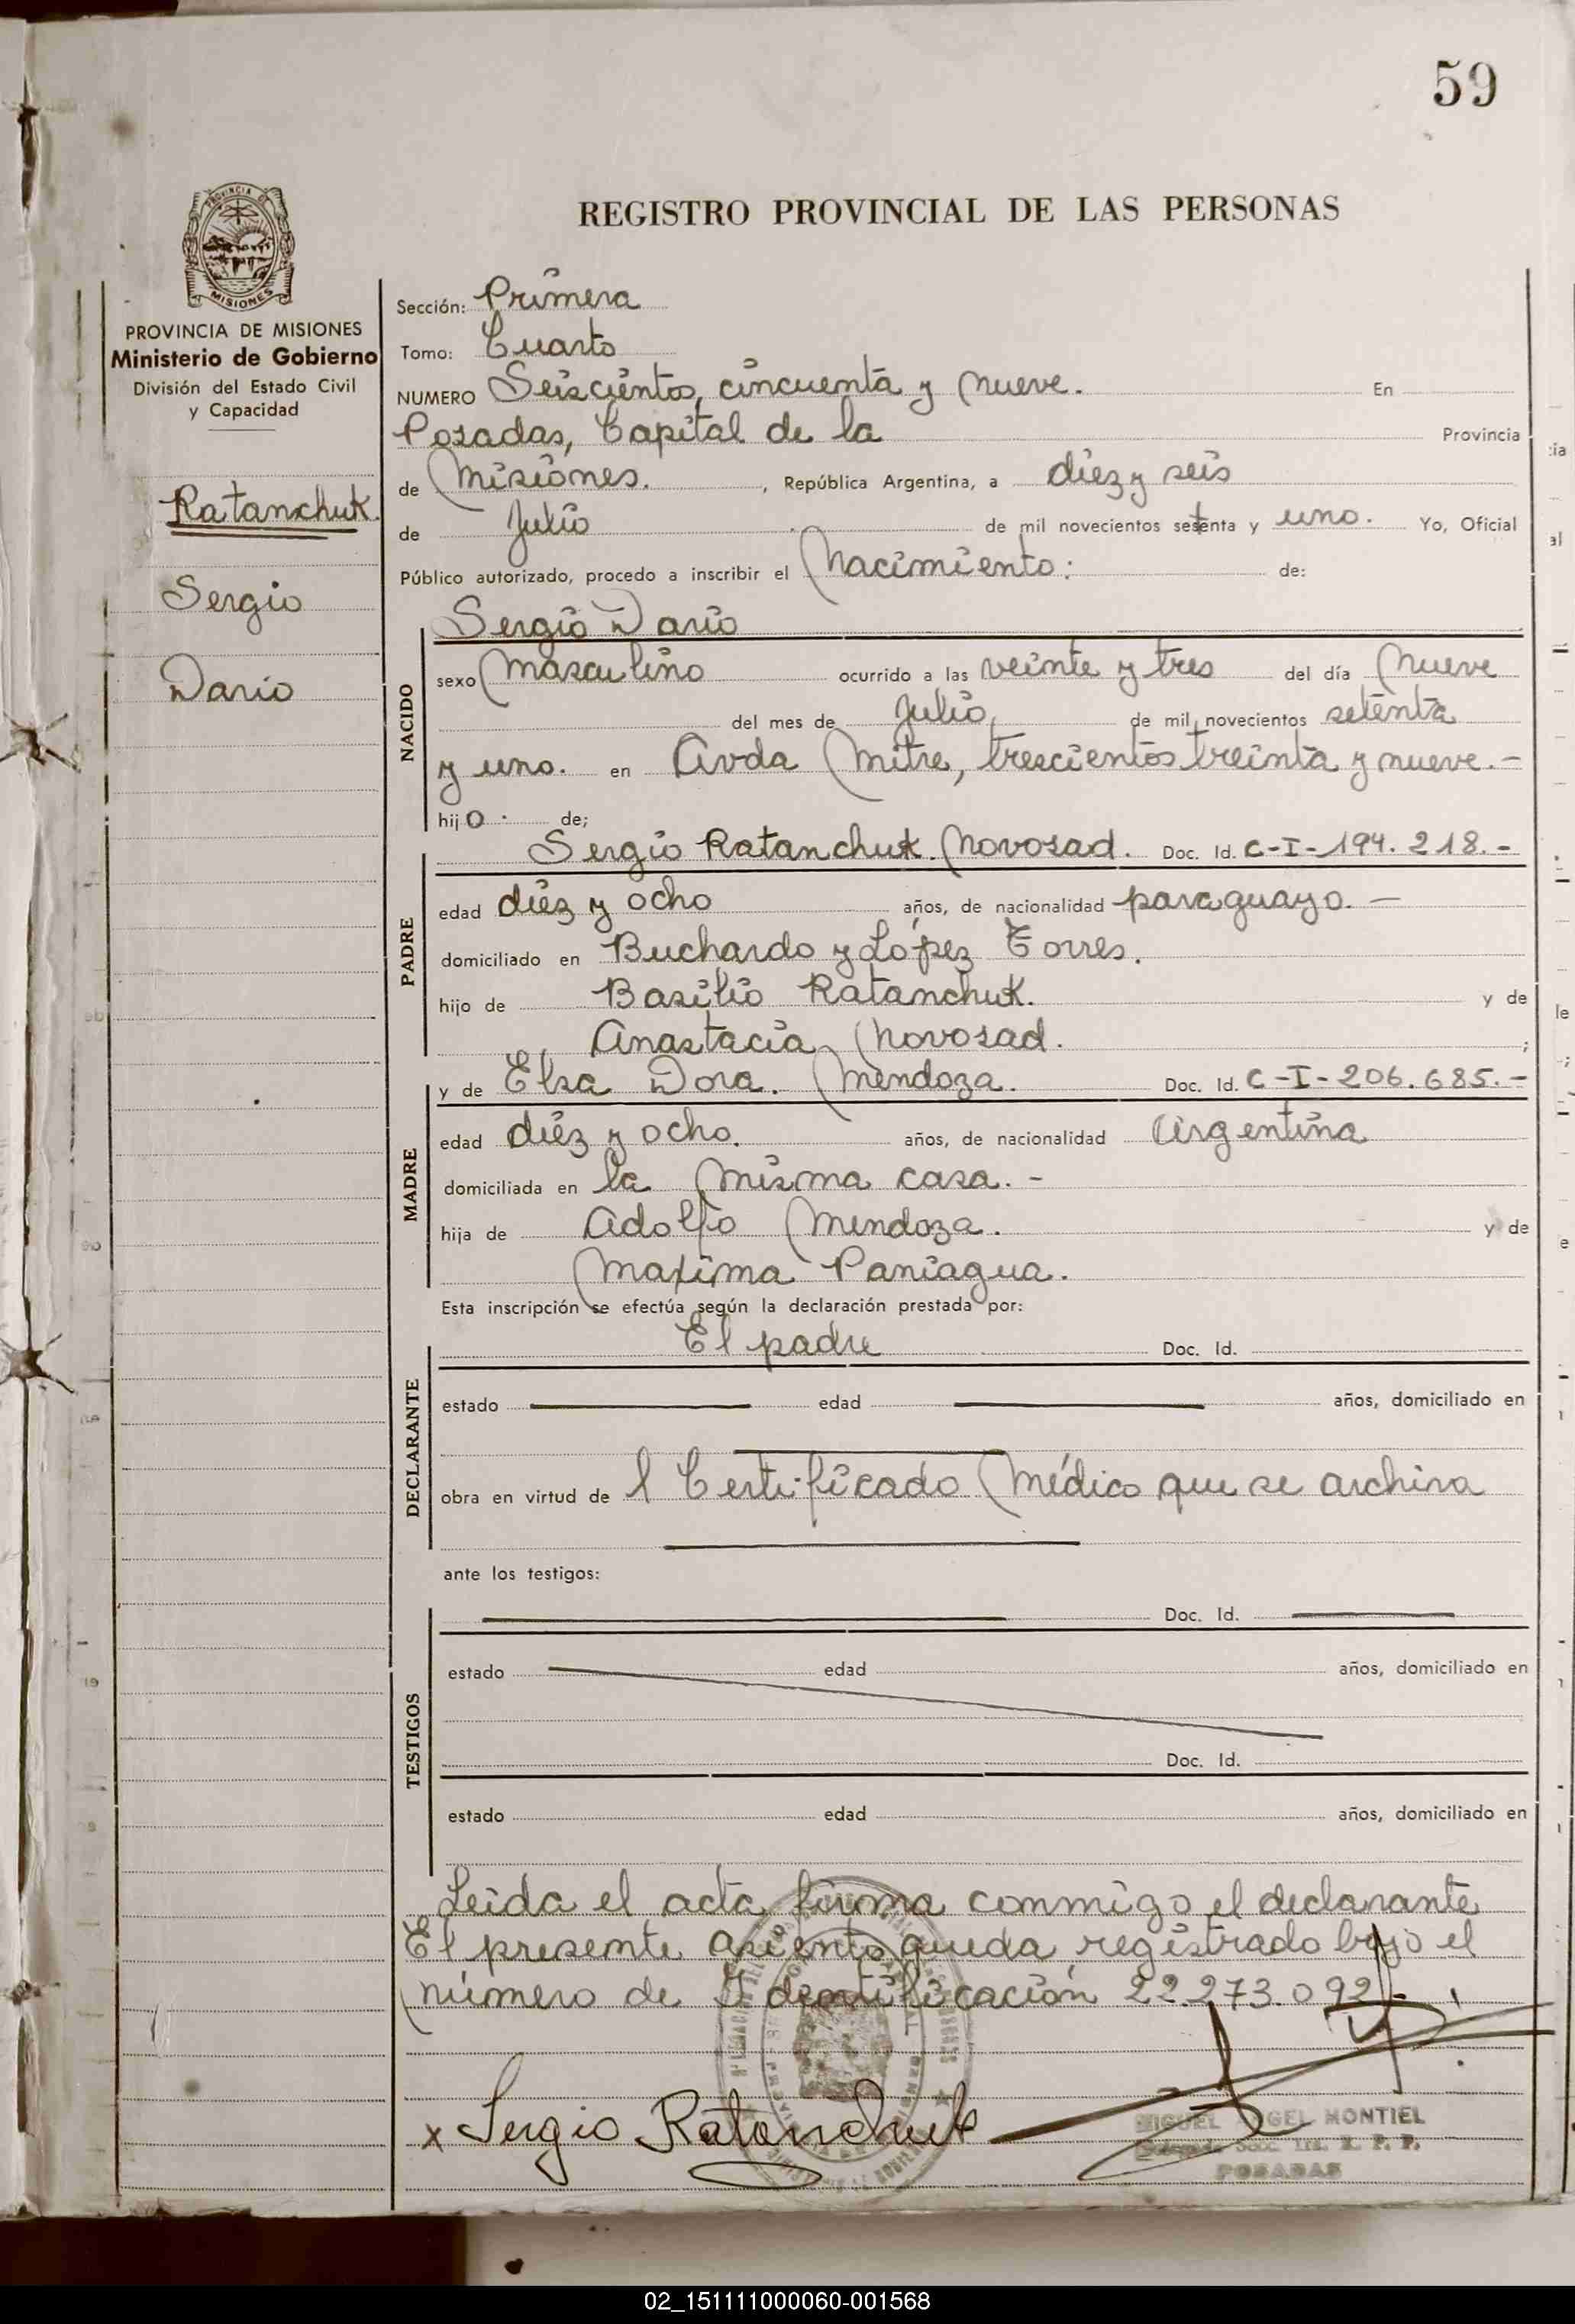 59
REGISTRO PROVINCIAL DE LAS PERSONAS
PROVINCIA DE
MISIONES
PROVINCIA DE MISIONES
Ministerio de Gobierno
División del Estado Civil
y Capacidad
Ratanchuk
Sergio
Dario
Sección: Primera
Tomo: Cuarto
NUMERO Seiscientos, cincuenta y nueve. En
Posadas, Capital de la Provincia
de Misiones. , República Argentina, a diez y seis
de Julio de mil novecientos setenta y uno. Yo, Oficial
Público autorizado, procedo a inscribir el Nacimiento: de:
NACIDO
Sergio Dario
sexo Masculino ocurrido a las veinte y tres del día Nueve
del mes de Julio, de mil novecientos setenta
y uno. en Avda Mitre, trescientos treinta y nueve.-
hijo . de;
PADRE
Sergio Ratanchuk. Novosad. Doc. Id. C-I-194.218.-
edad diez y ocho años, de nacionalidad paraguayo. -
domiciliado en Buchardo y López Torres.
hijo de Basilio Ratanchuk. y de
Anastacia Novosad. ;
MADRE
y de Elsa Dora. Mendoza. Doc. Id. C-I-206.685.-
edad diez y ocho. años, de nacionalidad Argentina
domiciliada en la misma casa. -
hija de Adolfo Mendoza. y de
Maxima Paniagua.
Esta inscripción se efectúa según la declaración prestada por:
DECLARANTE
El padre Doc. Id.
estado edad años, domiciliado en
obra en virtud de l Certificado Médico que se archiva
ante los testigos:
TESTIGOS
Doc. Id.
estado edad años, domiciliado en
Doc. Id.
estado edad años, domiciliado en
Leida el acta firma conmigo el declarante
El presente asiento queda registrado bajo el
número de Identificación 22.273.092.-
x Sergio Ratanchuk
MIGUEL ANGEL MONTIEL
POSADAS
02_151111000060-001568